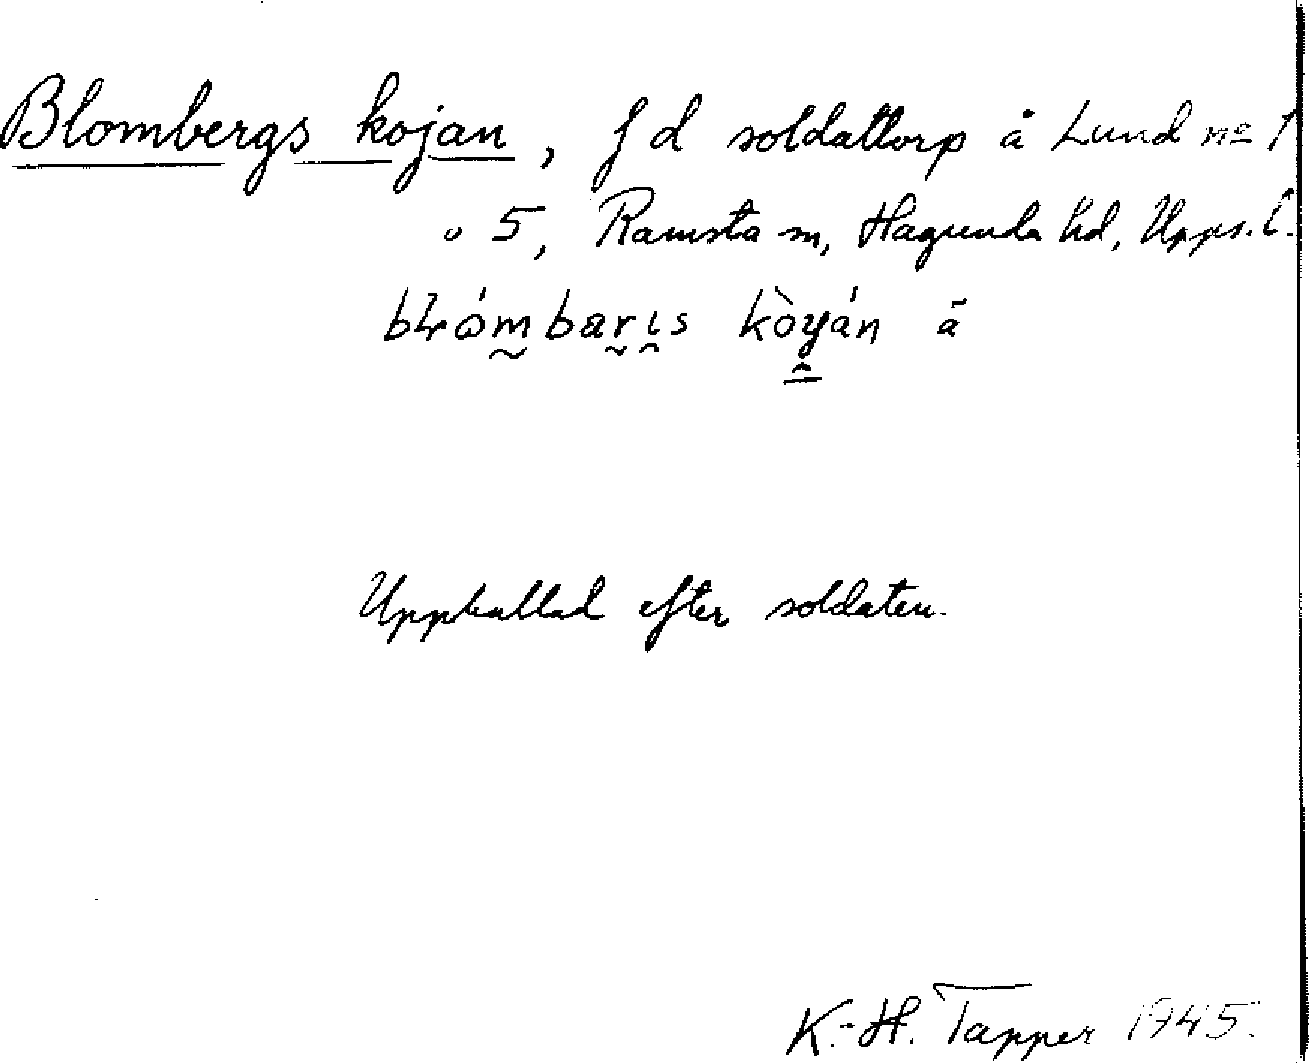 Blombergs kojan, f d soldattorp å Lund no 1
o 5, Ramsta sn, Hagunda hd, Upps. l.
kòyán ā
Uppkallad efter soldaten.
K.-H. Tapper 1945.